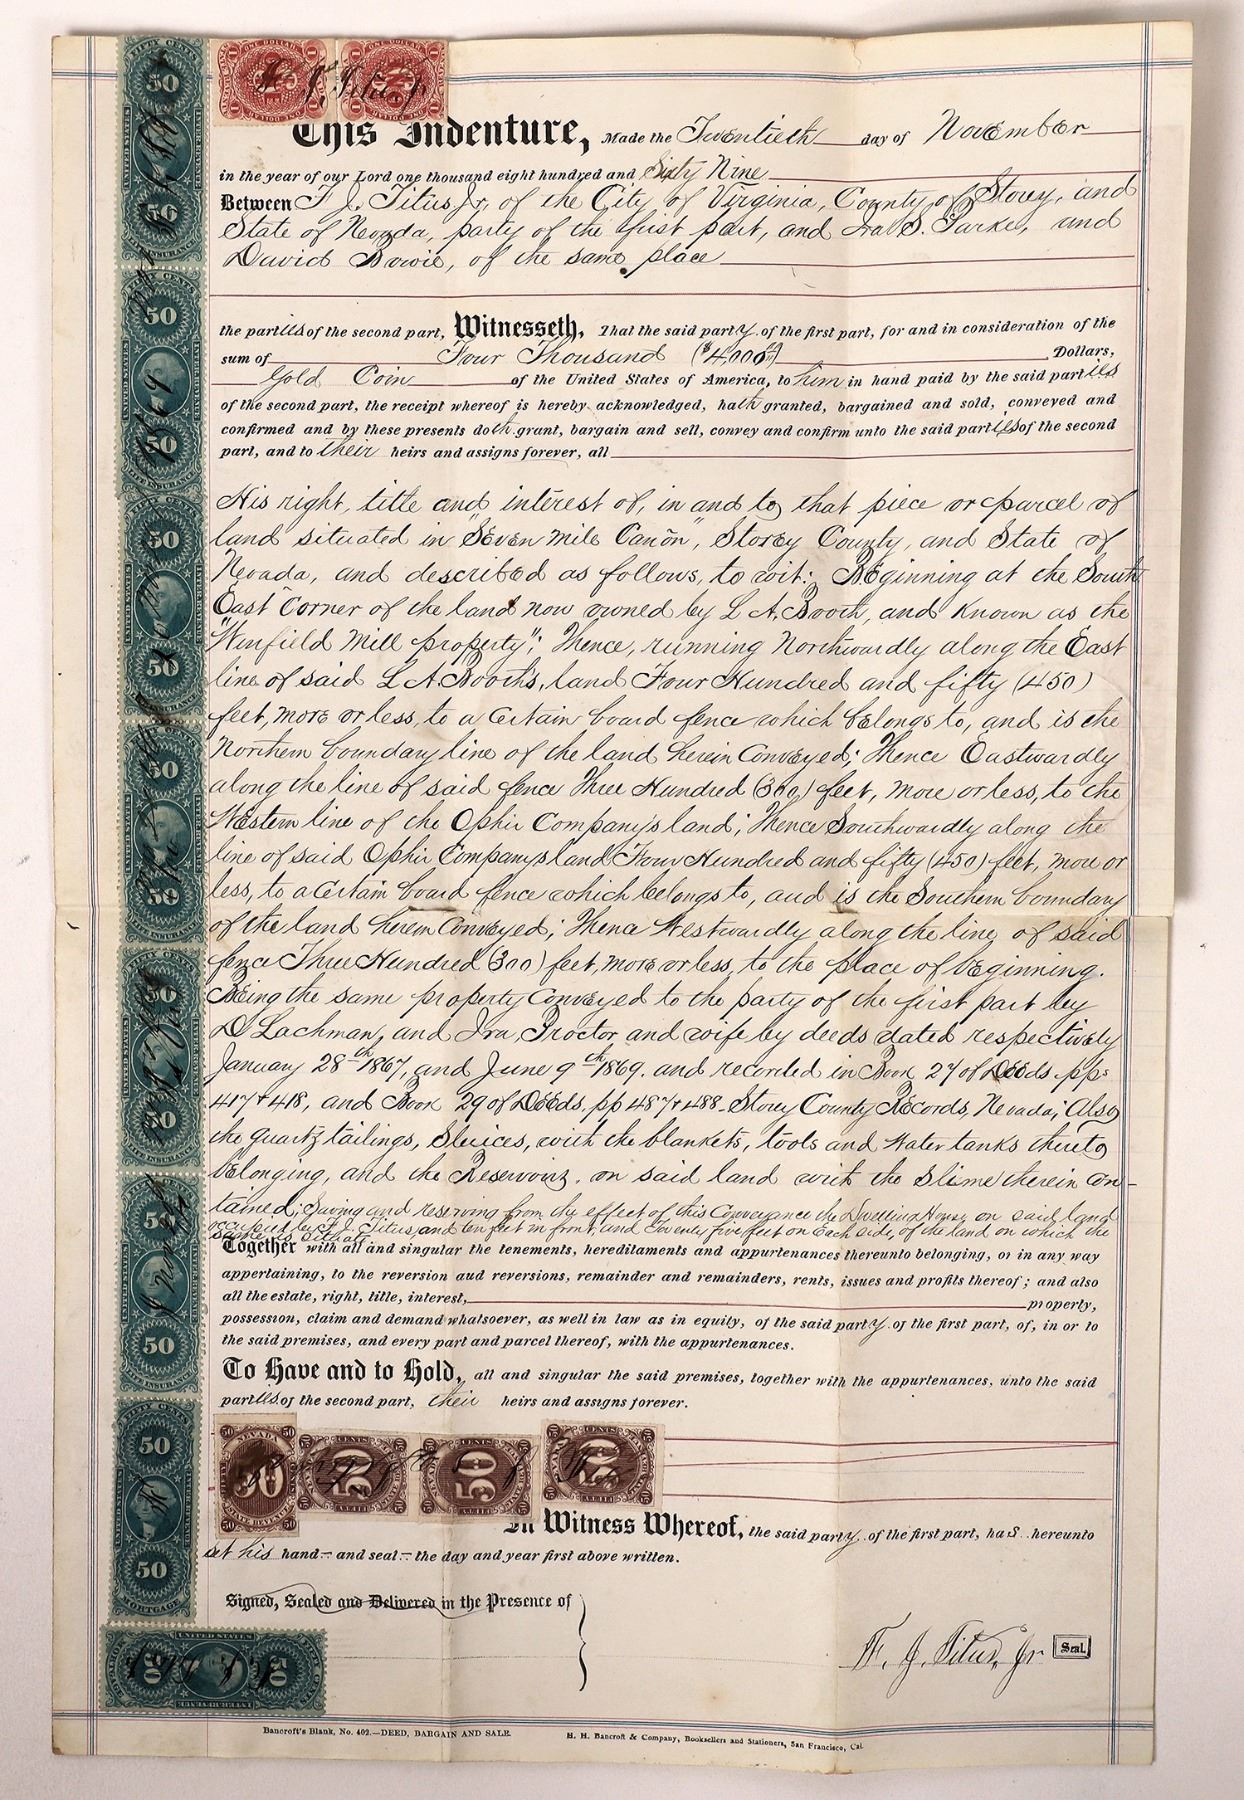 This Indenture, Made the Twentieth day of November
in the year of our Lord one thousand eight hundred and Sixty Nine
Between F. J. Titus, Jr, of the City of Virginia, County of Storey, and
State of Nevada, party of the first part, and Ira S. Parke, and
David Bowie, of the same place
the parties of the second part, Witnesseth, That the said party of the first part, for and in consideration of the
sum of Four Thousand ($4,000) Dollars,
Gold Coin of the United States of America, to him in hand paid by the said parties
of the second part, the receipt whereof is hereby acknowledged, hath granted, bargained and sold, conveyed and
confirmed and by these presents doth grant, bargain and sell, convey and confirm unto the said parties of the second
part, and to their heirs and assigns forever, all
His right, title and interest of, in and to that piece or parcel of
land situated in "Seven Mile Cañon", Storey County, and State of
Nevada, and described as follows, to wit: Beginning at the South
East Corner of the land now owned by L A. Booth, and known as the
"Winfield Mill property"; Thence, running Northwardly along the East
line of said L A. Booth's, land Four Hundred and fifty (450)
feet, more or less, to a Certain board fence which belongs to, and is the
Northern boundary line of the land herein Conveyed; Thence Eastwardly
along the line of said fence Three Hundred (300) feet, more or less, to the
Western line of the Ophir Company's land; Thence Southwardly along the
line of said Ophir Company's land Four Hundred and fifty (450) feet, more or
less, to a Certain board fence which belongs to, and is the Southern boundary
of the land herein Conveyed; Thence Westwardly along the line of said
fence Three Hundred (300) feet, more or less, to the place of beginning.
Being the same property Conveyed to the party of the first part by
D. Lachman, and Ira, Proctor and wife by deeds dated respectively
January 28th 1867, and June 9th 1869. and recorded in Book 27 of Deeds pps
417 & 418, and Book 29 of Deeds, pp 487 & 488. Storey County Records, Nevada; Also
the quartz tailings, Sluices, with the blankets, tools and Water tanks thereto
belonging, and the Reservoirs, on said land with the Slime therein con-
tained; Saving and reserving from the effect of this Conveyance the Dwelling House on said land
occupied by F. J. Titus, and ten feet in front, and Twenty five feet on each side, of the land on which the
same is situate.
Together with all and singular the tenements, hereditaments and appurtenances thereunto belonging, or in any way
appertaining, to the reversion and reversions, remainder and remainders, rents, issues and profits thereof; and also
all the estate, right, title, interest, property,
possession, claim and demand whatsoever, as well in law as in equity, of the said party of the first part, of, in or to
the said premises, and every part and parcel thereof, with the appurtenances.
To Have and to Hold, all and singular the said premises, together with the appurtenances, unto the said
parties of the second part, their heirs and assigns forever.
In Witness Whereof, the said party of the first part, has hereunto
set his hand and seal the day and year first above written.
Signed, Sealed and Delivered in the Presence of
F. J. Titus, Jr Seal.
Bancroft's Blank, No. 402.—DEED, BARGAIN AND SALE. H. H. Bancroft & Company, Booksellers and Stationers, San Francisco, Cal.